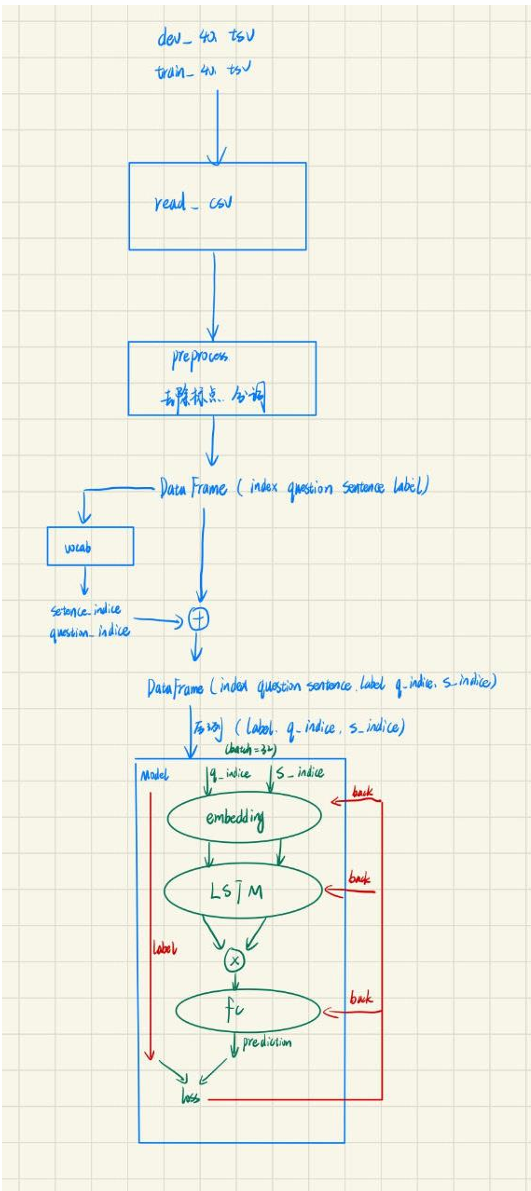 dev_40.tsv
train_40.tsv
read_csv
preprocess
去除标点、分词
DataFrame (index question sentence label)
vocab
setence_indice
question_indice
+
DataFrame (index question sentence label q_indice, s_indice)
(label, q_indice, s_indice)
(batch=32)
Model
q_indice s_indice
back
embedding
back
LSTM
label
×
back
fc
prediction
loss